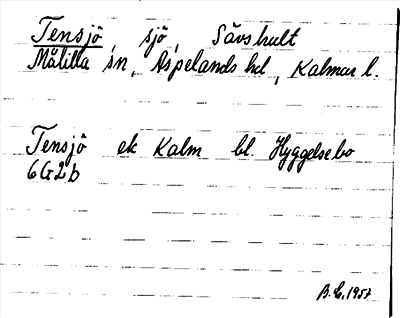 Tensjö sjö, Sävshult
Målilla sn, Aspelands hd, Kalmar l.
Tensjö ek Kalm bl. Hyggelsebo
6G2b
B.E. 1957